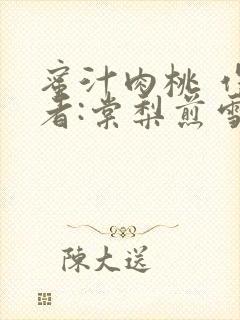 蜜汁肉桃 作
者:棠梨煎雪
陳大送